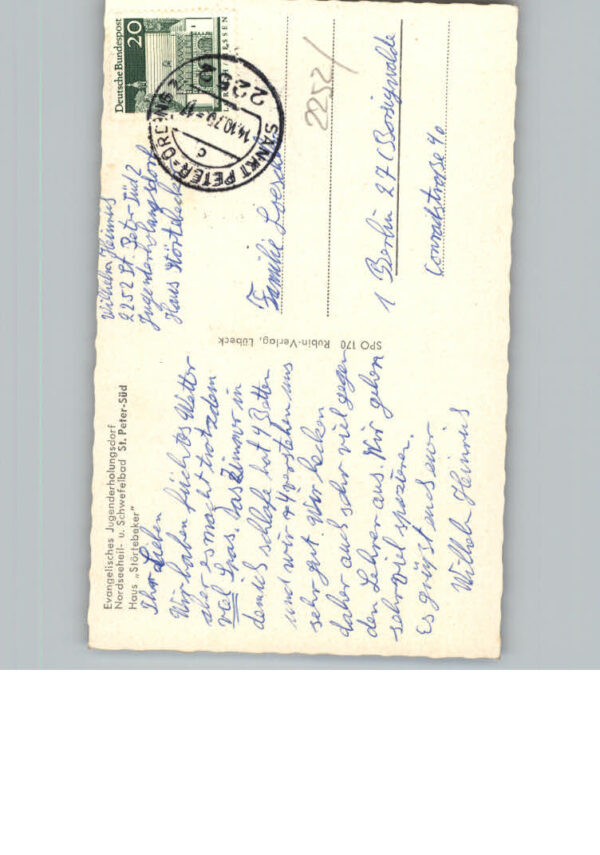 Evangelisches Jugenderholungsdorf
Nordseeheil- u. Schwefelbad St. Peter-Süd
Haus „Störtebeker"
Ihr Lieben
Wir haben Wetter
aber es macht trotzdem
viel Spas. Das Zimmer in
dem ich schlafe hat 4 Betten
und wir 4 verstehen uns
sehr gut. Wir hecken
daher auch sehr viel gegen
den Lehrer aus. Wir gehen
sehr viel spazieren.
Es grüßt euch euer
Wilhelm Heinrich
SPO 170 Rubin-Verlag, Lübeck
Wilhelm
2252 St. Peter Süd 2
Jugenderholungsdorf
Haus Störtebeker
Deutsche Bundespost
20
2254
SANKT PETER-ORDING
14.10.70-17
c
2252/
Familie
1 Berlin 27 (Borsigwalde
Conradstrasse 40